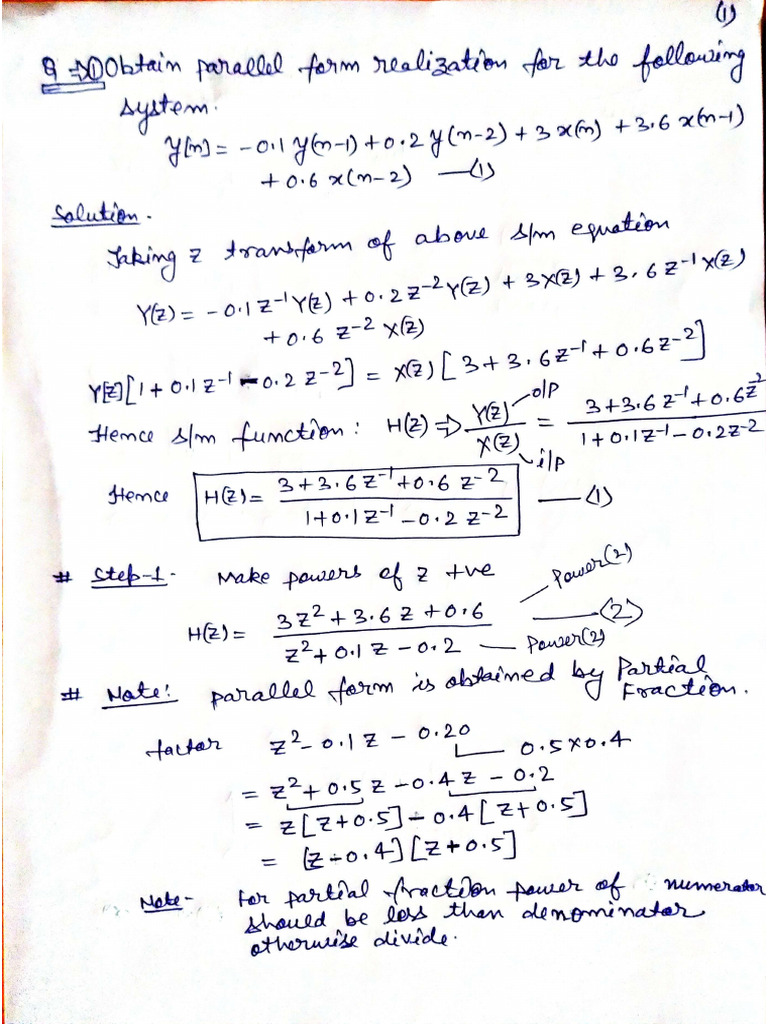 (1)
Q ⇒ ① Obtain parallel form realization for the following
system.
y[n] = -0.1 y(n-1) + 0.2 y(n-2) + 3 x(n) + 3.6 x(n-1)
+ 0.6 x(n-2) —(1)
Solution -
Taking z transform of above s/m equation
Y(z) = -0.1 z⁻¹ Y(z) + 0.2 z⁻² Y(z) + 3X(z) + 3.6 z⁻¹ X(z)
+ 0.6 z⁻² X(z)
Y[z][1 + 0.1 z⁻¹ - 0.2 z⁻²] = X(z) [3 + 3.6 z⁻¹ + 0.6 z⁻²]
Hence s/m function: H(z) ⇒ Y(z) o/p / X(z) i/p = 3 + 3.6 z⁻¹ + 0.6 z⁻² / 1 + 0.1 z⁻¹ - 0.2 z⁻²
Hence H(z) = 3 + 3.6 z⁻¹ + 0.6 z⁻² / 1 + 0.1 z⁻¹ - 0.2 z⁻² —(1)
# Step-1 - Make powers of z +ve
H(z) = 3z² + 3.6 z + 0.6 / z² + 0.1 z - 0.2 —(2)
Power(2)
Power(2)
# Note: parallel form is obtained by Partial
Fraction.
factor z² - 0.1 z - 0.20
0.5 x 0.4
= z² + 0.5 z - 0.4 z - 0.2
= z[z + 0.5] - 0.4 [z + 0.5]
= [z - 0.4] [z + 0.5]
Note - For partial fraction power of numerator
should be less than denominator
otherwise divide.